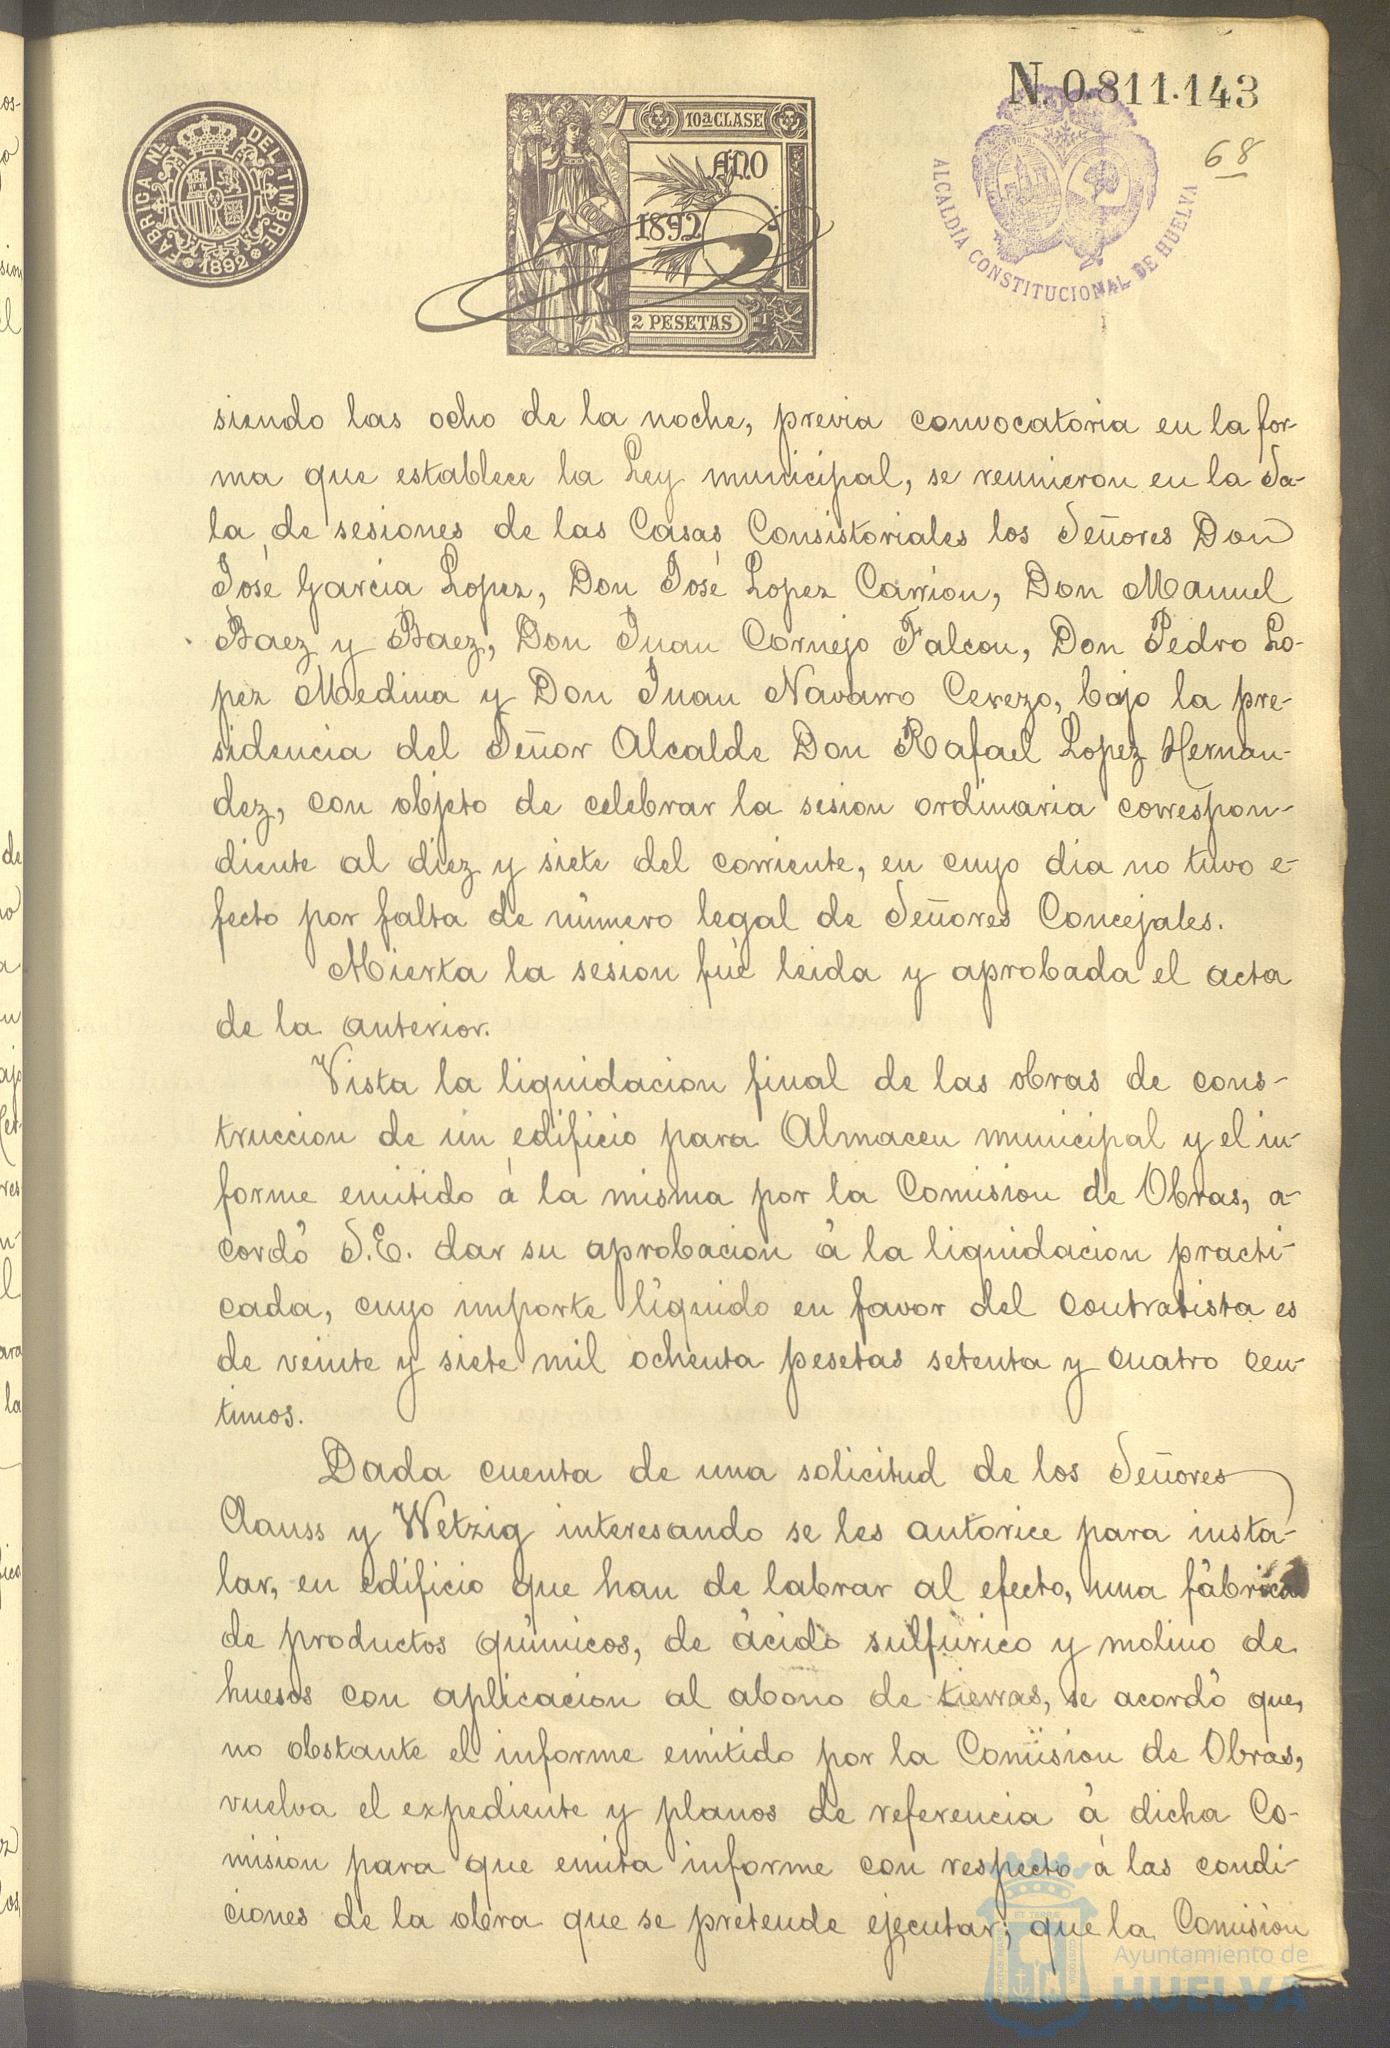 N. 0.811.143
68
FABRICA NL. DEL TIMBRE
1892
10ª CLASE
AÑO
1892
2 PESETAS
ALCALDIA CONSTITUCIONAL DE HUELVA
siendo las ocho de la noche, previa convocatoria en la for-
ma que establece la Ley municipal, se reunieron en la Sa-
la de sesiones de las Casas Consistoriales los Señores Don
José Garcia Lopez, Don José Lopez Carrion, Don Manuel
Baez y Baez, Don Juan Cornejo Falcon, Don Pedro Lo-
pez Medina y Don Juan Navarro Cerezo, bajo la pre-
sidencia del Señor Alcalde Don Rafael Lopez Hernan-
dez, con objeto de celebrar la sesion ordinaria correspon-
diente al diez y siete del corriente, en cuyo dia no tuvo e-
fecto por falta de número legal de Señores Concejales.
Abierta la sesion fué leida y aprobada el acta
de la anterior.
Vista la liquidacion final de las obras de cons-
truccion de un edificio para Almacen municipal y el in-
forme emitido á la misma por la Comision de Obras, a-
cordó S.E. dar su aprobacion á la liquidacion practi-
cada, cuyo importe líquido en favor del contratista es
de veinte y siete mil ochenta pesetas setenta y cuatro cen-
timos.
Dada cuenta de una solicitud de los Señores
Clauss y Wetzig interesando se les autorice para insta-
lar, en edificio que han de labrar al efecto, una fábrica
de productos químicos, de ácido sulfúrico y molino de
huesos con aplicacion al abono de tierras, se acordó que,
no obstante el informe emitido por la Comision de Obras,
vuelva el expediente y planos de referencia á dicha Co-
mision para que emita informe con respecto á las condi-
ciones de la obra que se pretende ejecutar; que la Comision
Ayuntamiento de
HUELVA